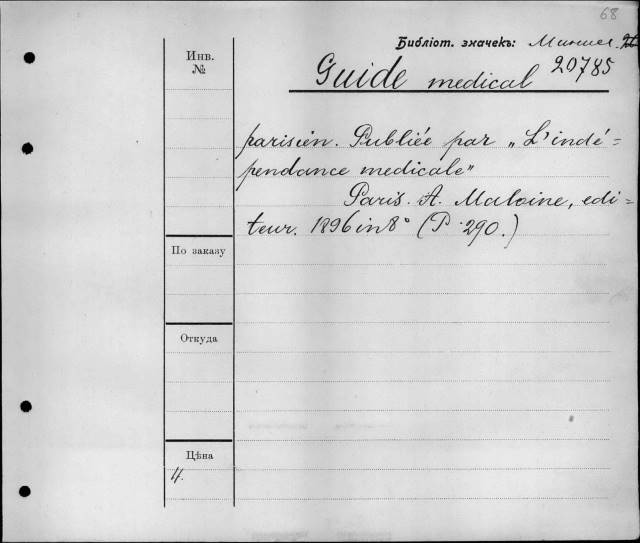 68
Библіот. значекъ:
Инв.
№
20785
Guide medical
parisien. Publiée par „L'indé-
pendance medicale"
Paris. A. Maloine, edi-
teur. 1896 in 8° (P. 290.)
По заказу
Откуда
Цѣна
4.